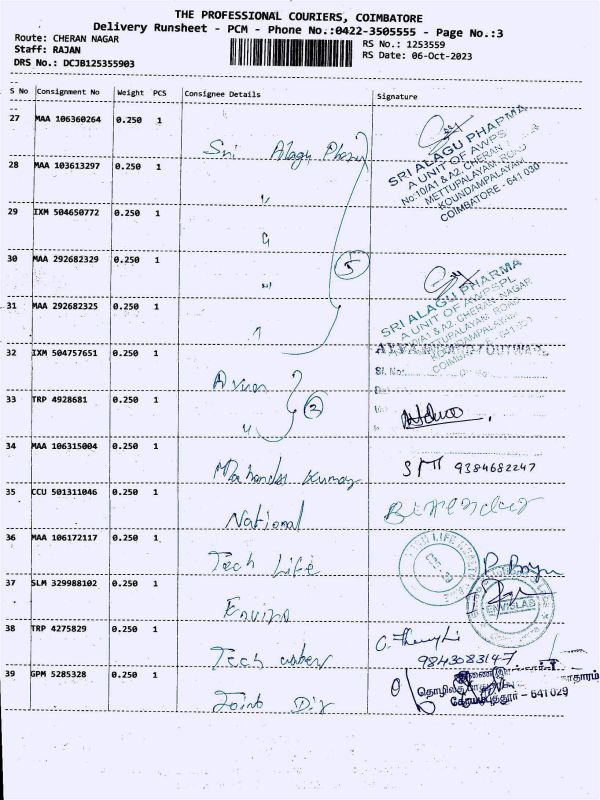 THE PROFESSIONAL COURIERS, COIMBATORE
Delivery Runsheet - PCM - Phone No.:0422-3505555 - Page No.:3
Route: CHERAN NAGAR
Staff: RAJAN
DRS No.: DCJB125355903
RS No.: 1253559
RS Date: 06-Oct-2023
S No Consignment No Weight PCS Consignee Details Signature
27 MAA 106360264 0.250 1
Sri Alagu Pharma
SRI ALAGU PHARMA
A UNIT OF AWPS
No:10/A1 & A2, CHERAN
METTUPALAYAM ROAD
KOUNDAMPALAYAM
COIMBATORE - 641 030
28 MAA 103613297 0.250 1
29 IXM 504650772 0.250 1
30 MAA 292682329 0.250 1
5
SRI ALAGU PHARMA
A UNIT OF AWPSPL
10/A1 & A2, CHERAN NAGAR
METTUPALAYAM ROAD
KOUNDAMPALAYAM
31 MAA 292682325 0.250 1
32 IXM 504757651 0.250 1
Sl. No:
33 TRP 4928681 0.250 1
2
34 MAA 106315004 0.250 1
Mahendra Kumar
9384682247
35 CCU 501311046 0.250 1
National
36 MAA 106172117 0.250 1
Tech Life
37 SLM 329988102 0.250 1
Enviro
ENVISLAB
38 TRP 4275829 0.250 1
Tech
9843083147
39 GPM 5285328 0.250 1
Joint Dir
கோயமுத்தூர் - 641 029